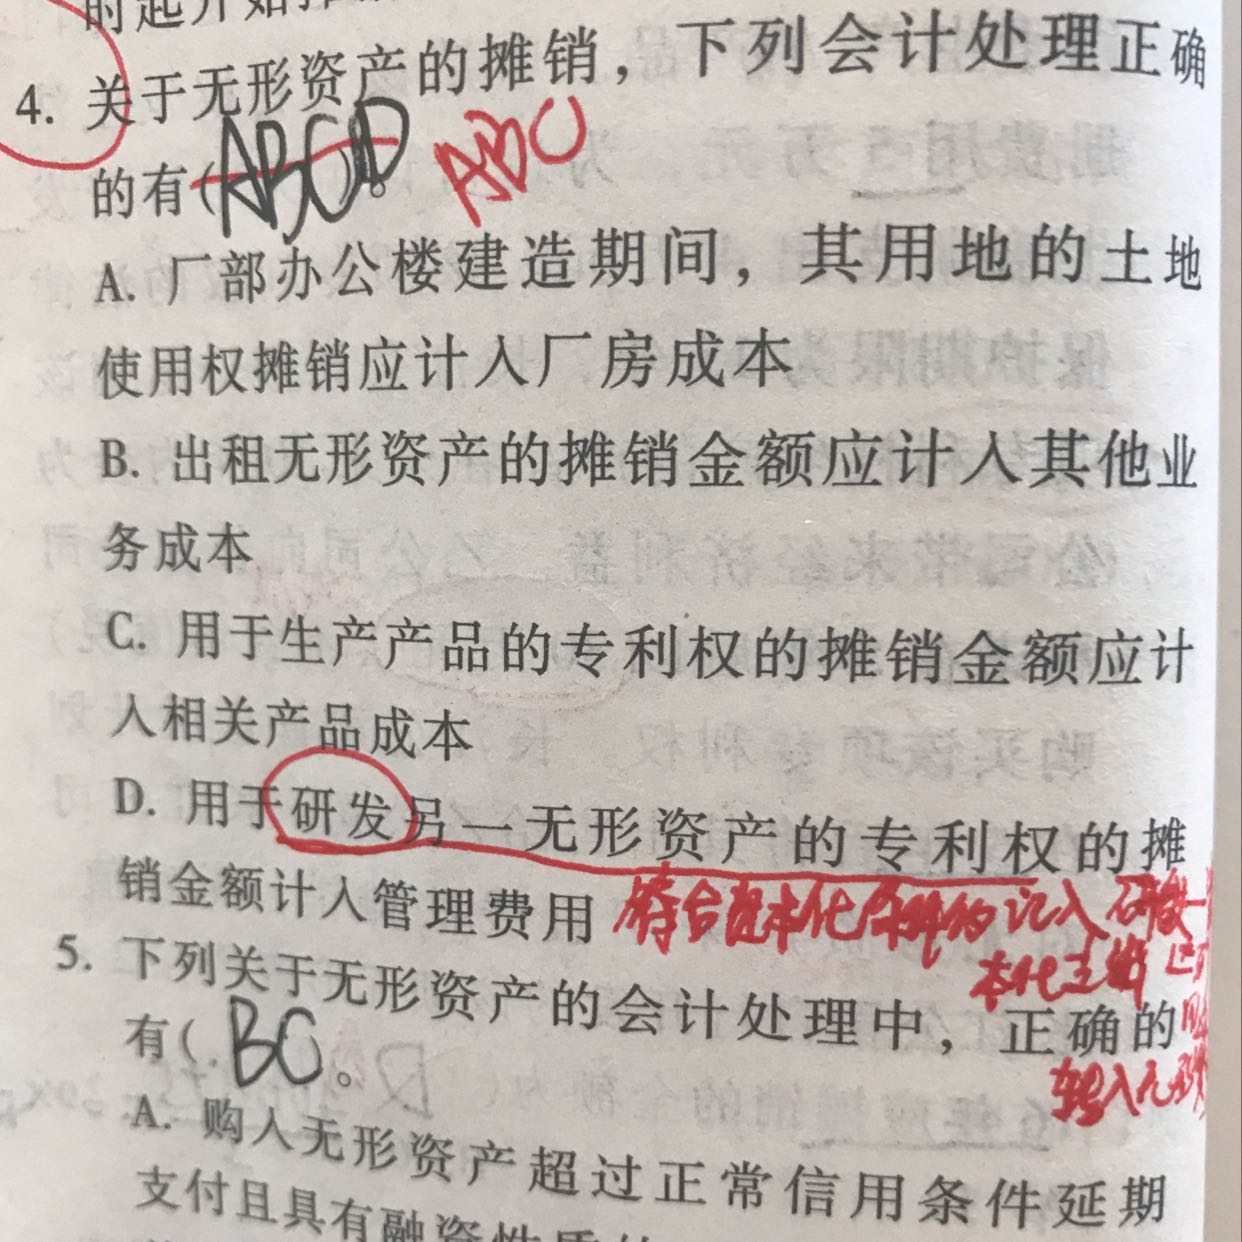 时起开始
4. 关于无形资产的摊销，下列会计处理正确
的有(ABCD)。 ABC
A. 厂部办公楼建造期间，其用地的土地
使用权摊销应计入厂房成本
B. 出租无形资产的摊销金额应计入其他业
务成本
C. 用于生产产品的专利权的摊销金额应计
入相关产品成本
D. 用于研发另一无形资产的专利权的摊
销金额计入管理费用 符合资本化条件的记入研发
本化支出
5. 下列关于无形资产的会计处理中，正确的
有( BC 。
转入无形
A. 购入无形资产超过正常信用条件延期
支付且具有融资性质的